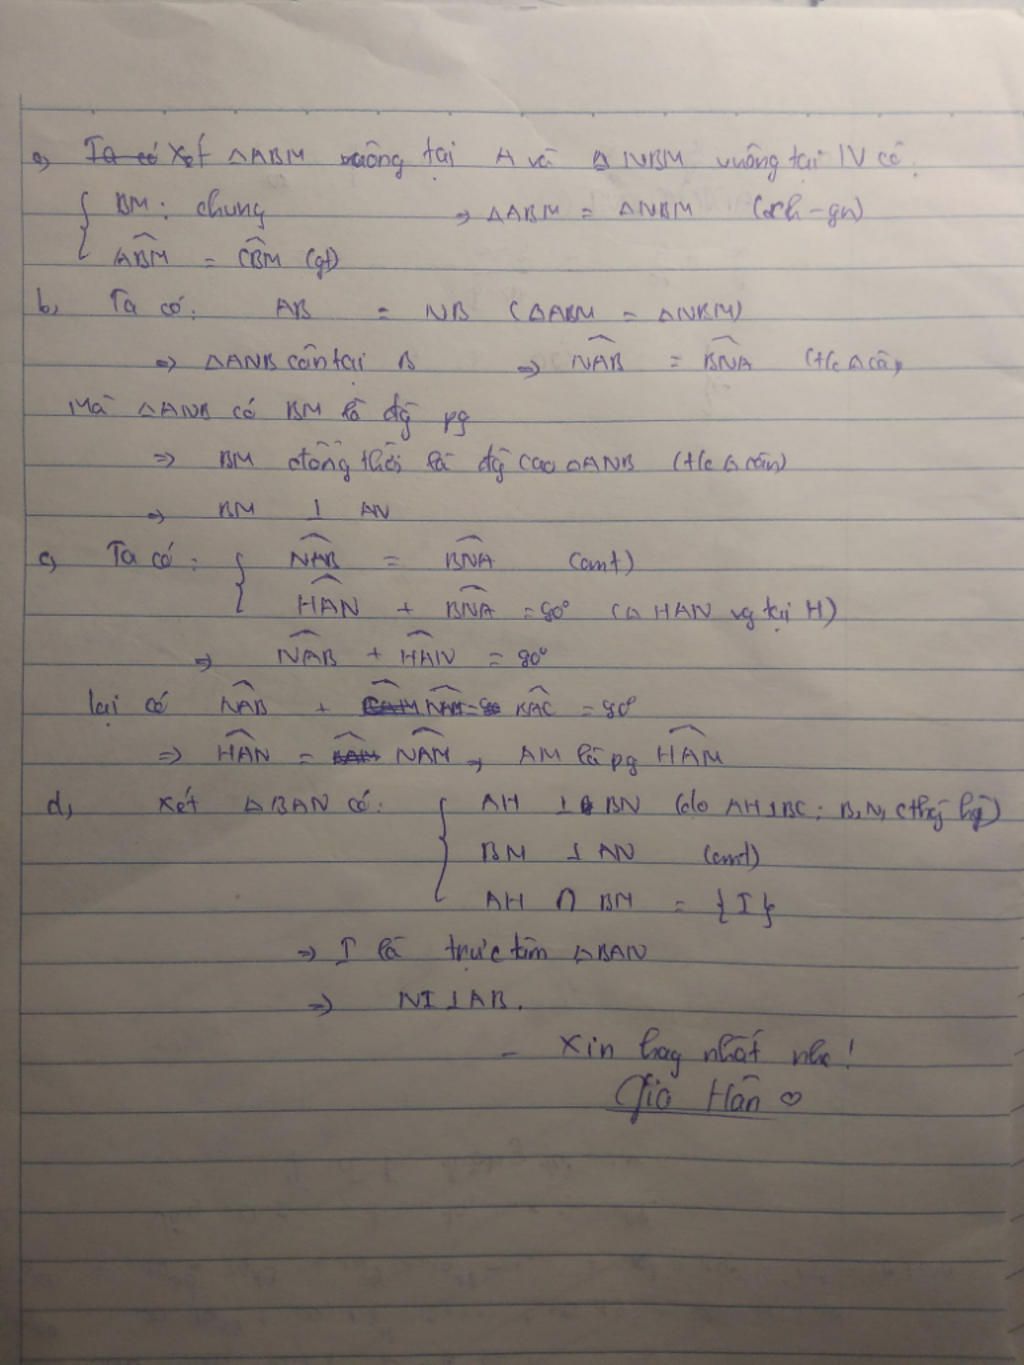 a, Ta có Xét △ABM vuông tại A và △NBM vuông tại N có.
BM: chung => △ABM = △NBM (ch-gn)
ABM = CBM (gt)
b, Ta có: AB = NB (△ABM = △NBM)
=> △ANB cân tại B => NAB = BNA (t/c △cân)
Mà △ANB có BM là đg pg
=> BM đồng thời là đg cao △ANB (t/c △cân)
=> BM ⊥ AN
c, Ta có: NAB = BNA (cmt)
HAN + BNA = 90° (△ HAN vg tại H)
=> NAB + HAN = 90°
lại có NAB + BAC = 90°
=> HAN = NAM => AM là pg HAM
d, Xét △BAN có: AH ⊥ BN (do AH⊥BC; B,N,C thg hg)
BM ⊥ AN (cmt)
AH ∩ BM = {I}
=> I là trực tâm △BAN
=> NI⊥AB.
- Xin hay nhất nha!
Gia Hân ♡